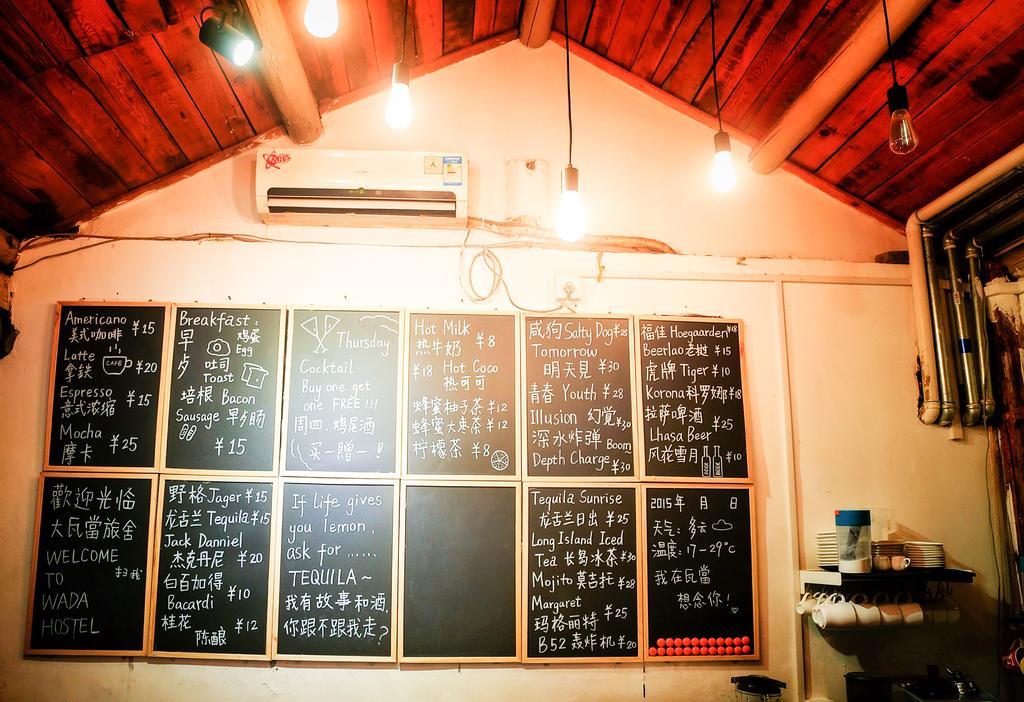 Americano
美式咖啡 ¥15
Latte
拿鉄 CAFE ¥20
Espresso
意式浓缩 ¥15
Mocha
摩卡 ¥25
Breakfast:
早 鸡蛋
Egg
吐司
Toast
培根 Bacon
Sausage 早夕肠
¥15
Thursday
Cocktail
Buy one get
one FREE!!!
周四.鸡尾酒
买一赠一!
Hot Milk
热牛奶 ¥8
¥18 Hot Coco
热可可
蜂蜜柚子茶 ¥12
蜂蜜大枣茶 ¥12
柠檬茶 ¥8
咸狗 Salty Dog ¥25
Tomorrow
明天見 ¥30
青春 Youth ¥28
Illusion 幻覚 ¥30
深水炸彈 Boom
Depth Charge ¥30
福佳 Hoegaarden ¥18
Beerlao 老挝 ¥15
虎牌 Tiger ¥10
Korona 科罗娜 ¥18
拉萨啤酒 ¥25
Lhasa Beer
风花雪月 ¥10
歡迎光临
大瓦當旅舍
WELCOME 扫我
TO
WADA
HOSTEL
野格 Jager ¥15
龙舌兰 Tequila ¥15
Jack Danniel
杰克丹尼 ¥20
白百加得
Bacardi ¥10
桂花
陈酿 ¥12
If life gives
you lemon,
ask for ......
TEQUILA~
我有故事和酒.
你跟不跟我走?
Tequila Sunrise
龙舌兰日出 ¥25
Long Island Iced
Tea 长岛冰茶 ¥30
Mojito 莫吉托 ¥28
Margaret
玛格丽特 ¥25
B52 轰炸机 ¥20
2015年 月 日
天气: 多云
温度: 17-29°C
我在瓦當
想念你!